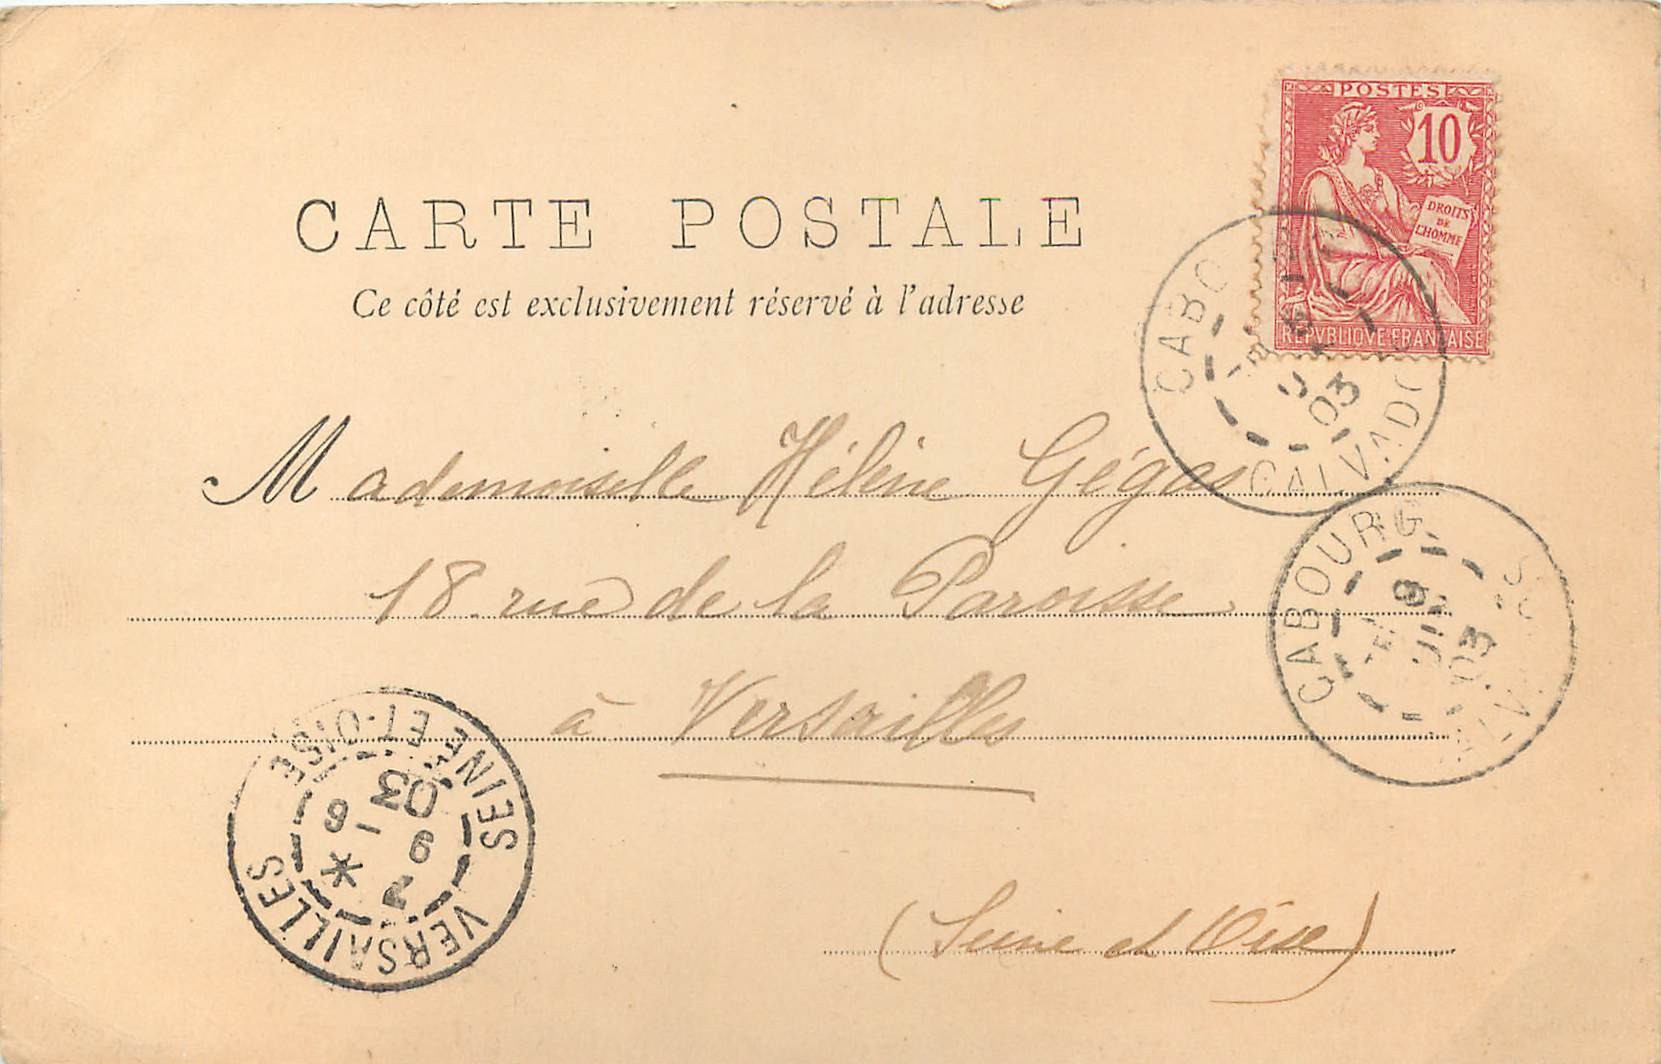 POSTES
10
DROITS
DE
L'HOMME
REPVBLIQVE FRANÇAISE
CARTE POSTALE
Ce côté est exclusivement réservé à l'adresse
CABO
03
CALVADO
Mademoiselle Hélène Gégas
18 rue de la Paroisse
à Versailles
(Seine et Oise)
CABOURG
8
JUIN
03
VERSAILLES
SEINE-ET-OISE
9 - 6
03